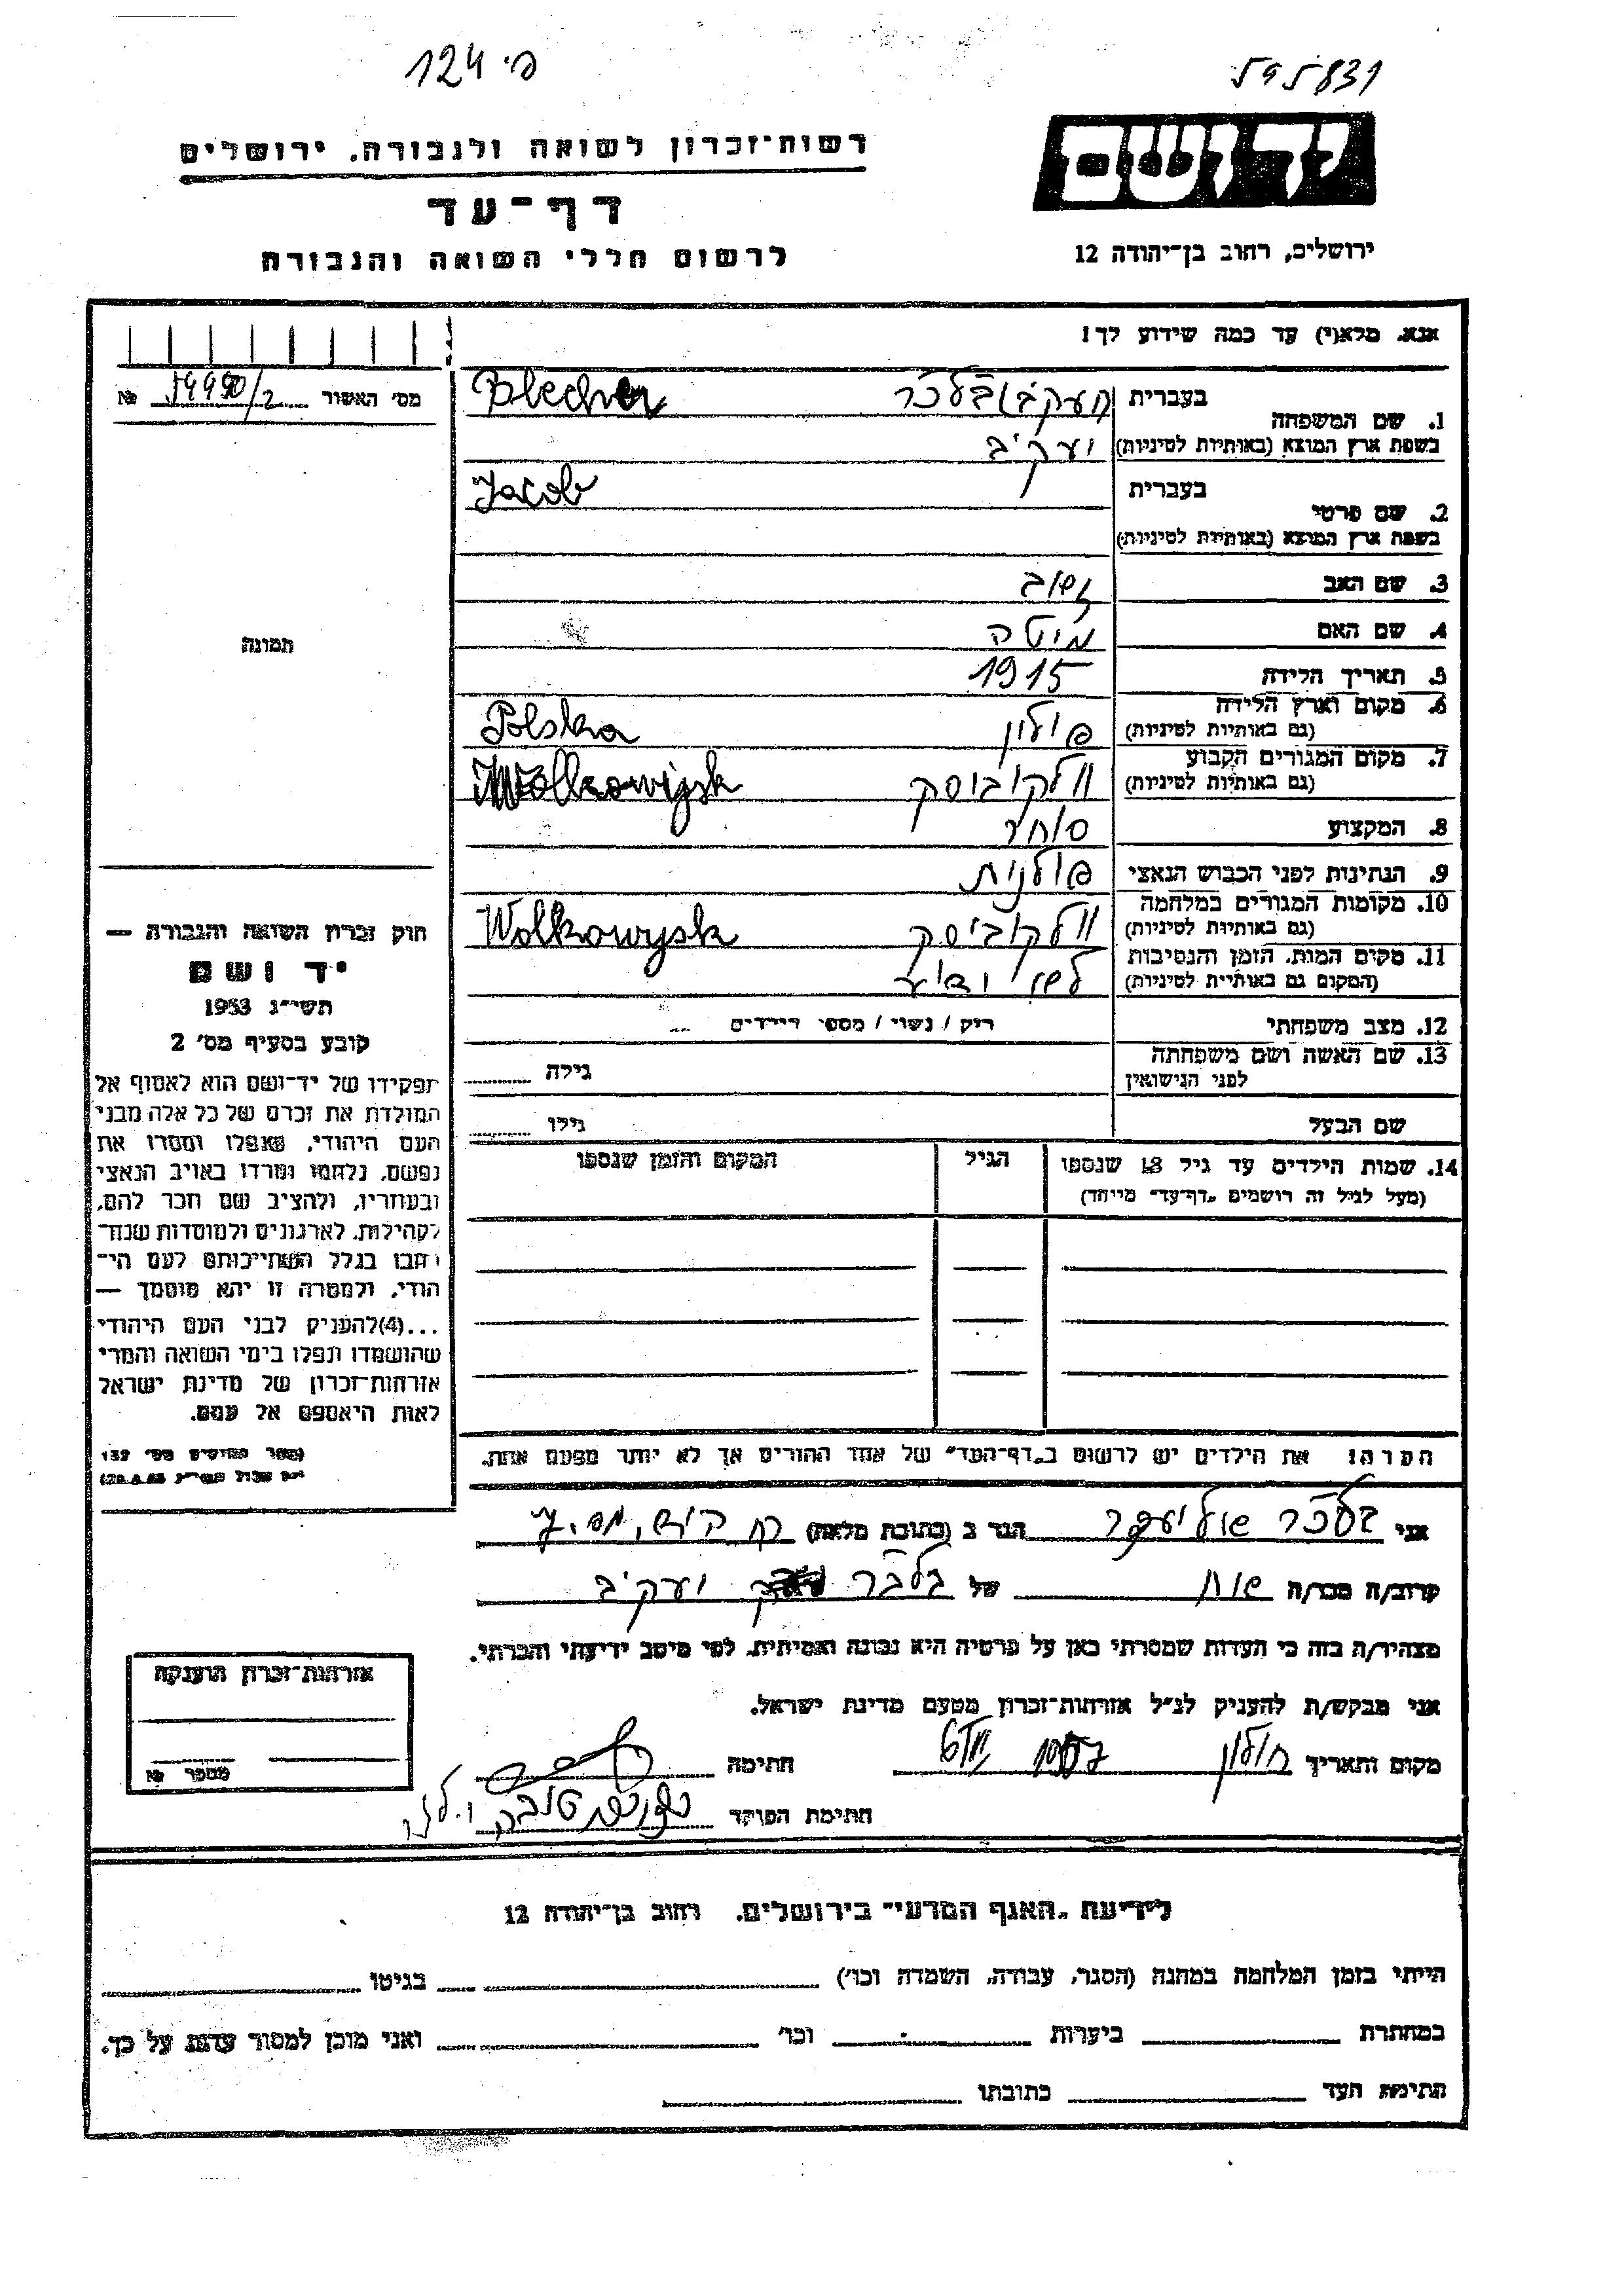 פ. 124
595831
יד ושם
רשות־זכרון לשואה ולגבורה, ירושלים
דף־עד
ירושלים, רחוב בן־יהודה 12
לרשום חללי השואה והגבורה
אנא, מלא(י) עד כמה שידוע לך!
מס׳ האשור 59990/2 №
תמונה
1. שם המשפחה
בעברית בלכר Blecher
בשפת ארץ המוצא (באותיות לטיניות) יעקיב
2. שם פרטי
בעברית Jacob
בשפת ארץ המוצא (באותיות לטיניות)
3. שם האב
4. שם האם מיטה
5. תאריך הלידה 1915
6. מקום וארץ הלידה
(גם באותיות לטיניות) פולין Polska
7. מקום המגורים הקבוע
(גם באותיות לטיניות) וולקוביסק Wolkowijsk
8. המקצוע סוחר
9. הנתינות לפני הכבוש הנאצי פולנית
10. מקומות המגורים במלחמה
(גם באותיות לטיניות) וולקוביסק Wolkowysk
11. מקום המות, הזמן והנסיבות
(המקום גם באותיות לטיניות)
12. מצב משפחתי רוק / נשוי / מספר הילדים
13. שם האשה ושם משפחתה
לפני הנישואין גילה
שם הבעל גילו
14. שמות הילדים עד גיל 18 שנספו הגיל המקום והזמן שנספו
(מעל לגיל זה רושמים "דף־עד" מיוחד)
חוק זכרון השואה והגבורה —
יד ושם
תשי״ג 1953
קובע בסעיף מס׳ 2
תפקידו של יד־ושם הוא לאסוף אל
המולדת את זכרם של כל אלה מבני
העם היהודי, שנפלו ומסרו את
נפשם, נלחמו ומרדו באויב הנאצי
ובעוזריו, ולהציב שם וזכר להם,
לקהילות, לארגונים ולמוסדות שנח־
רבו בגלל השתייכותם לעם הי־
הודי, ולמטרה זו יהא מוסמך —
...(4)להעניק לבני העם היהודי
שהושמדו ונפלו בימי השואה והמרי
אזרחות־זכרון של מדינת ישראל
לאות היאספם אל עמם.
(ספר החוקים מס׳ 132
הערה! את הילדים יש לרשום ב"דף־העד" של אחד ההורים אך לא יותר מפעם אחת.
אני בלכר הגר ב (כתובת מלאה)
קרוב/ה מכר/ה של בלכר יעקיב
מצהיר/ה בזה כי העדות שמסרתי כאן על פרטיה היא נכונה ואמיתית, לפי מיטב ידיעתי והכרתי.
אני מבקש/ת להעניק לנ״ל אזרחות־זכרון מטעם מדינת ישראל.
מקום ותאריך חולון חתימה
חתימת הפוקד
אזרחות־זכרון הוענקה
מספר №
לידיעת "האגף המדעי" בירושלים, רחוב בן־יהודה 12
הייתי בזמן המלחמה במחנה (הסגר, עבודה, השמדה וכו׳) בגיטו
במחתרת ביערות וכו׳ ואני מוכן למסור עדות על כך.
חתימת העד כתובתו